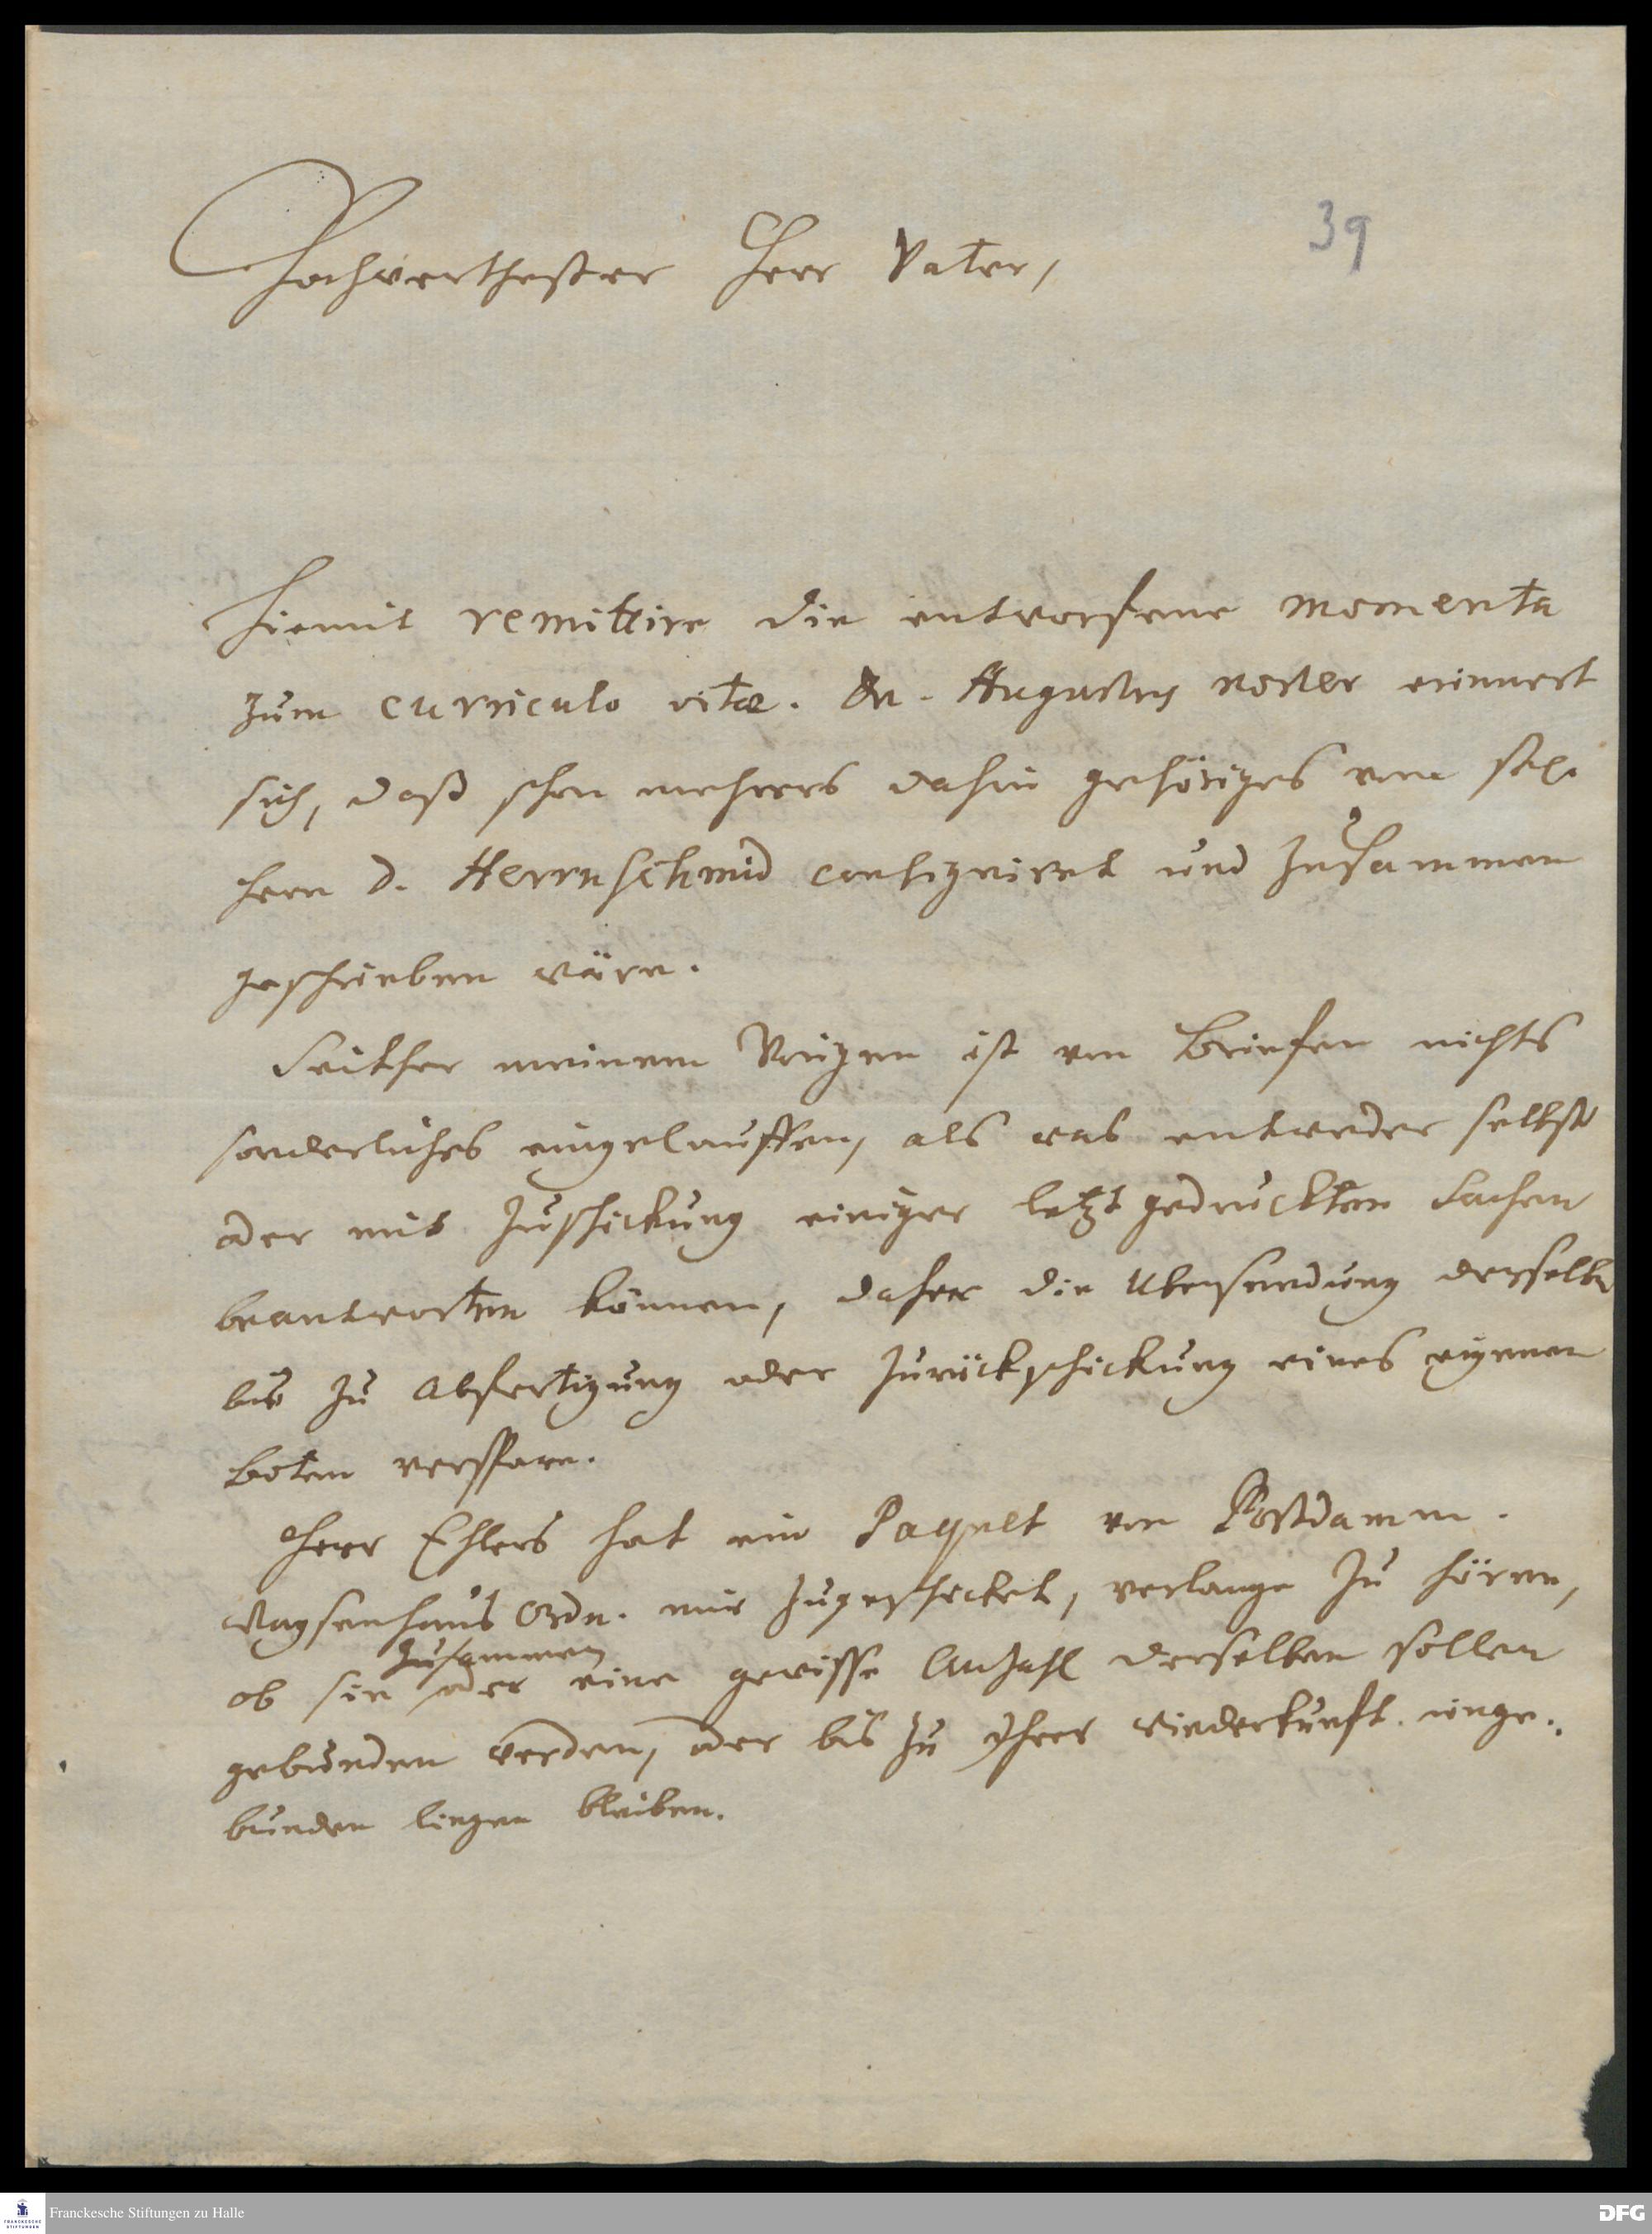 39
Hochwerthester Herr Vater,
Hiemit remittire die entworfene momenta
zum curriculo vitae. Augustus noster erinnert
sich, daß schon mehrers dahin gehöriges vom sel.
Herrn D. Herrnschmid consigniret und zusammen
geschrieben wäre.
Seither meinem Vorigen ist von Briefen nichts
sonderliches eingelauffen, als was entweder selbst
oder mit Zuschickung einiger letzt gedruckten Sachen
beantworten können, daher die Ubersendung derselben
bis zu Abfertigung oder Zurückschickung eines eigenen
boten verspare.
Herr Ehlers hat ein Paquet von Postdamm.
Waysenhaus Ordn. mir zugeschicket, verlange zu hören,
zusammen
ob sie oder eine gewisse Anzahl derselben sollen
gebunden werden, oder bis zu Ihrer wiederkunft unge-
bunden liegen bleiben.
Franckesche Stiftungen zu Halle
FRANCKESCHE
STIFTUNGEN
DFG